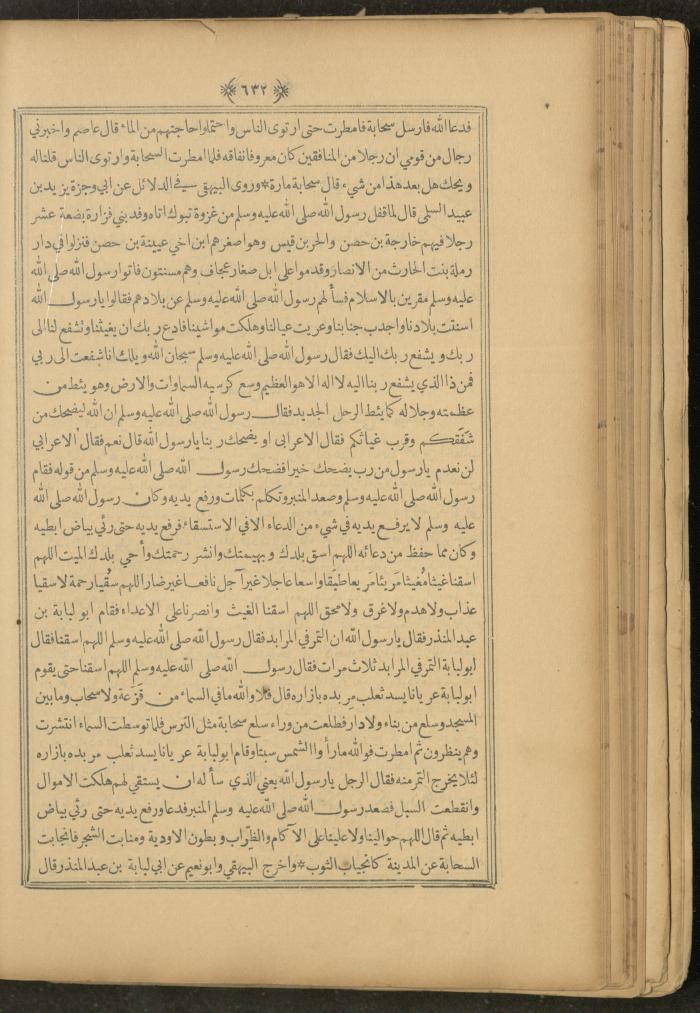 ٦٣٢
فدعا الله فارسل سحابة فامطرت حتى ارتوى الناس واحتملوا حاجتهم من الماء قال عاصم واخبرني
رجال من قومي ان رجلا من المنافقين كان معروفا نفاقه فلما امطرت السحابة وارتوى الناس قلنا له
ويحك هل بعد هذا من شيء قال سحابة مارة * وروى البيهقي في الدلائل عن ابي وجزة يزيد بن
عبيد السلمى قال لما قفل رسول الله صلى الله عليه وسلم من غزوة تبوك اتاه وفد بني فزارة بضعة عشر
رجلا فيهم خارجة بن حصن والحر بن قيس وهو اصغرهم ابن اخي عيينة بن حصن فنزلوا في دار
رملة بنت الحارث من الانصار وقدموا على ابل صغار عجاف وهم مسنتون فاتوا رسول الله صلى الله
عليه وسلم مقرين بالاسلام فسألهم رسول الله صلى الله عليه وسلم عن بلادهم فقالوا يا رسول الله
اسنتت بلادنا واجدب جنابنا وعريت عيالنا وهلكت مواشينا فادع ربك ان يغيثنا وتشفع لنا الى
ربك ويشفع ربك اليك فقال رسول الله صلى الله عليه وسلم سبحان الله ويلك انا شفعت الى ربي
فمن ذا الذي يشفع ربنا اليه لا اله الا هو العظيم وسع كرسيه السماوات والارض وهو يئط من
عظمته وجلاله كما يئط الرحل الجديد فقال رسول الله صلى الله عليه وسلم ان الله ليضحك من
شَفَقِكم وقرب غياثكم فقال الاعرابي او يضحك ربنا يا رسول الله قال نعم فقال الاعرابي
لن نعدم يا رسول من رب يضحك خيرا فضحك رسول الله صلى الله عليه وسلم من قوله فقام
رسول الله صلى الله عليه وسلم وصعد المنبر وتكلم بكلمات ورفع يديه وكان رسول الله صلى الله
عليه وسلم لا يرفع يديه في شيء من الدعاء الا في الاستسقاء فرفع يديه حتى رئي بياض ابطيه
وكان مما حفظ من دعائه اللهم اسق بلدك وبهيمتك وانشر رحمتك وأحي بلدك الميت اللهم
اسقنا غيثا مُغيثا مَريئا مَريعا طبَقا واسعا عاجلا غير آجل نافعا غير ضار اللهم سُقيا رحمة لا سقيا
عذاب ولا هدم ولا غرق ولا محق اللهم اسقنا الغيث وانصرنا على الاعداء فقام ابو لبابة بن
عبد المنذر فقال يا رسول الله ان التمر في المرابد فقال رسول الله صلى الله عليه وسلم اللهم اسقنا فقال
ابو لبابة التمر في المرابد ثلاث مرات فقال رسول الله صلى الله عليه وسلم اللهم اسقنا حتى يقوم
ابو لبابة عريانا يسد ثعلب مربده بازاره قال فلا والله ما في السماء من قزَعة ولا سحاب وما بين
المسجد وسلع من بناء ولا دار فطلعت من وراء سلع سحابة مثل الترس فلما توسطت السماء انتشرت
وهم ينظرون ثم امطرت فوالله ما رأوا الشمس سبتا وقام ابو لبابة عريانا يسد ثعلب مربده بازاره
لئلا يخرج التمر منه فقال الرجل يا رسول الله يعني الذي سأله ان يستقي لهم هلكت الاموال
وانقطعت السبل فصعد رسول الله صلى الله عليه وسلم المنبر فدعا ورفع يديه حتى رئي بياض
ابطيه ثم قال اللهم حوالينا ولا علينا على الآكام والظِّراب وبطون الاودية ومنابت الشجر فانجابت
السحابة عن المدينة كانجياب الثوب * واخرج البيهقي وابو نعيم عن ابي لبابة بن عبد المنذر قال